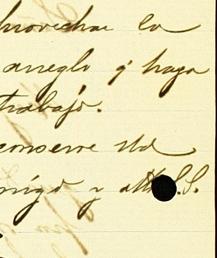 provechar la
arreglo q' haga
trabajo.
conserve Ud
migo y atto S.S.